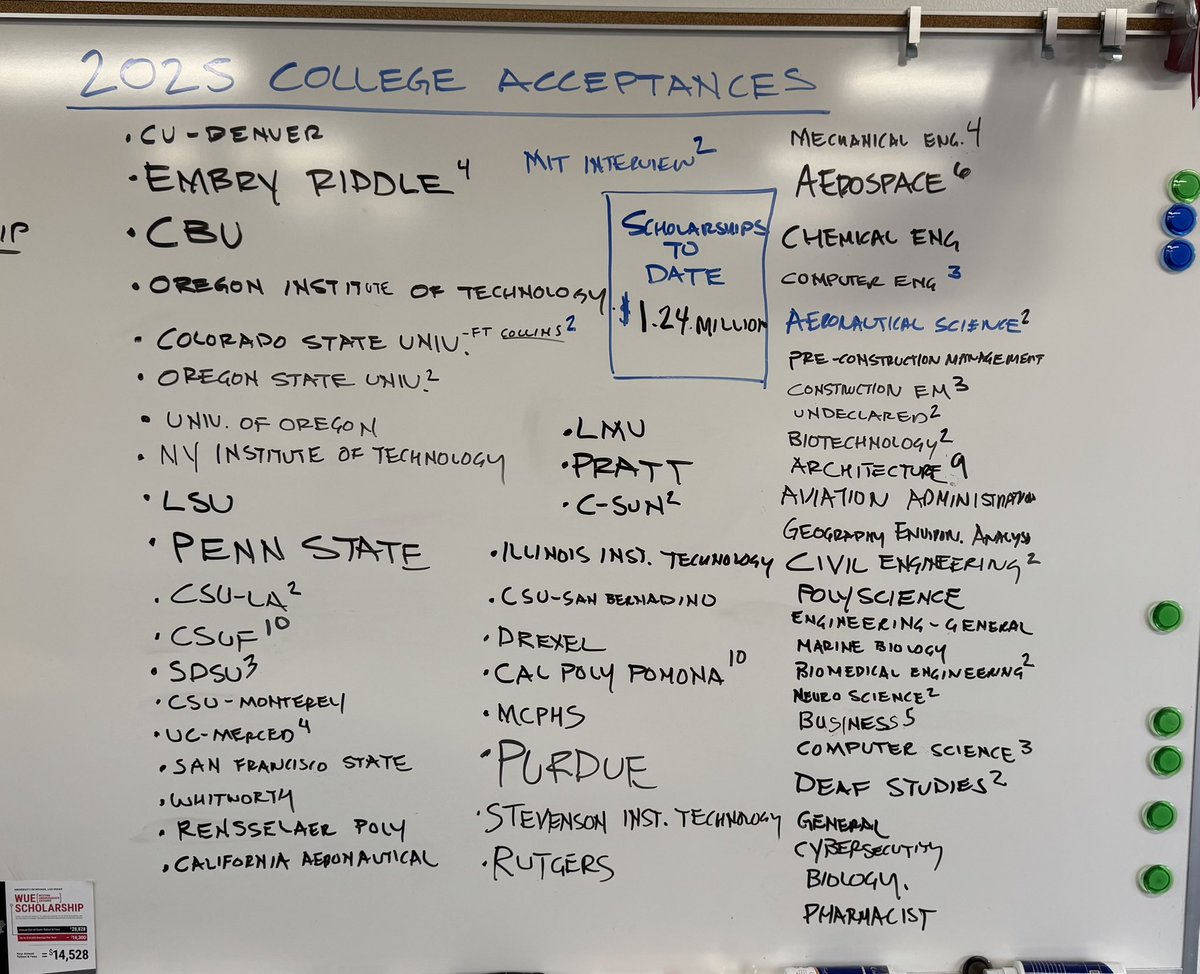 2025 COLLEGE ACCEPTANCES
IP
• CU-DENVER
• EMBRY RIDDLE 4
• CBU
• OREGON INSTITUTE OF TECHNOLOGY
• COLORADO STATE UNIV. -FT COLLINS 2
• OREGON STATE UNIV. 2
• UNIV. OF OREGON
• NY INSTITUTE OF TECHNOLOGY
• LSU
• PENN STATE
• CSU-LA 2
• CSUF 10
• SDSU 3
• CSU-MONTEREY
• UC-MERCED 4
• SAN FRANCISCO STATE
• WHITWORTH
• RENSSELAER POLY
• CALIFORNIA AERONAUTICAL
MIT INTERVIEW 2
SCHOLARSHIPS
TO
DATE
$1.24 MILLION
• LMU
• PRATT
• C-SUN 2
• ILLINOIS INST. TECHNOLOGY
• CSU-SAN BERNADINO
• DREXEL
• CAL POLY POMONA 10
• MCPHS
• PURDUE
• STEVENSON INST. TECHNOLOGY
• RUTGERS
MECHANICAL ENG. 4
AEROSPACE 6
CHEMICAL ENG
COMPUTER ENG 3
AERONAUTICAL SCIENCE 2
PRE-CONSTRUCTION MANAGEMENT
CONSTRUCTION EM 3
UNDECLARED 2
BIOTECHNOLOGY 2
ARCHITECTURE 9
AVIATION ADMINISTRATION
GEOGRAPHY ENVIRON. ANALYSIS
CIVIL ENGINEERING 2
POLYSCIENCE
ENGINEERING-GENERAL
MARINE BIOLOGY
BIOMEDICAL ENGINEERING 2
NEUROSCIENCE 2
BUSINESS 5
COMPUTER SCIENCE 3
DEAF STUDIES 2
GENERAL
CYBERSECUTITY
BIOLOGY.
PHARMACIST
WUE
SCHOLARSHIP
= $14,528